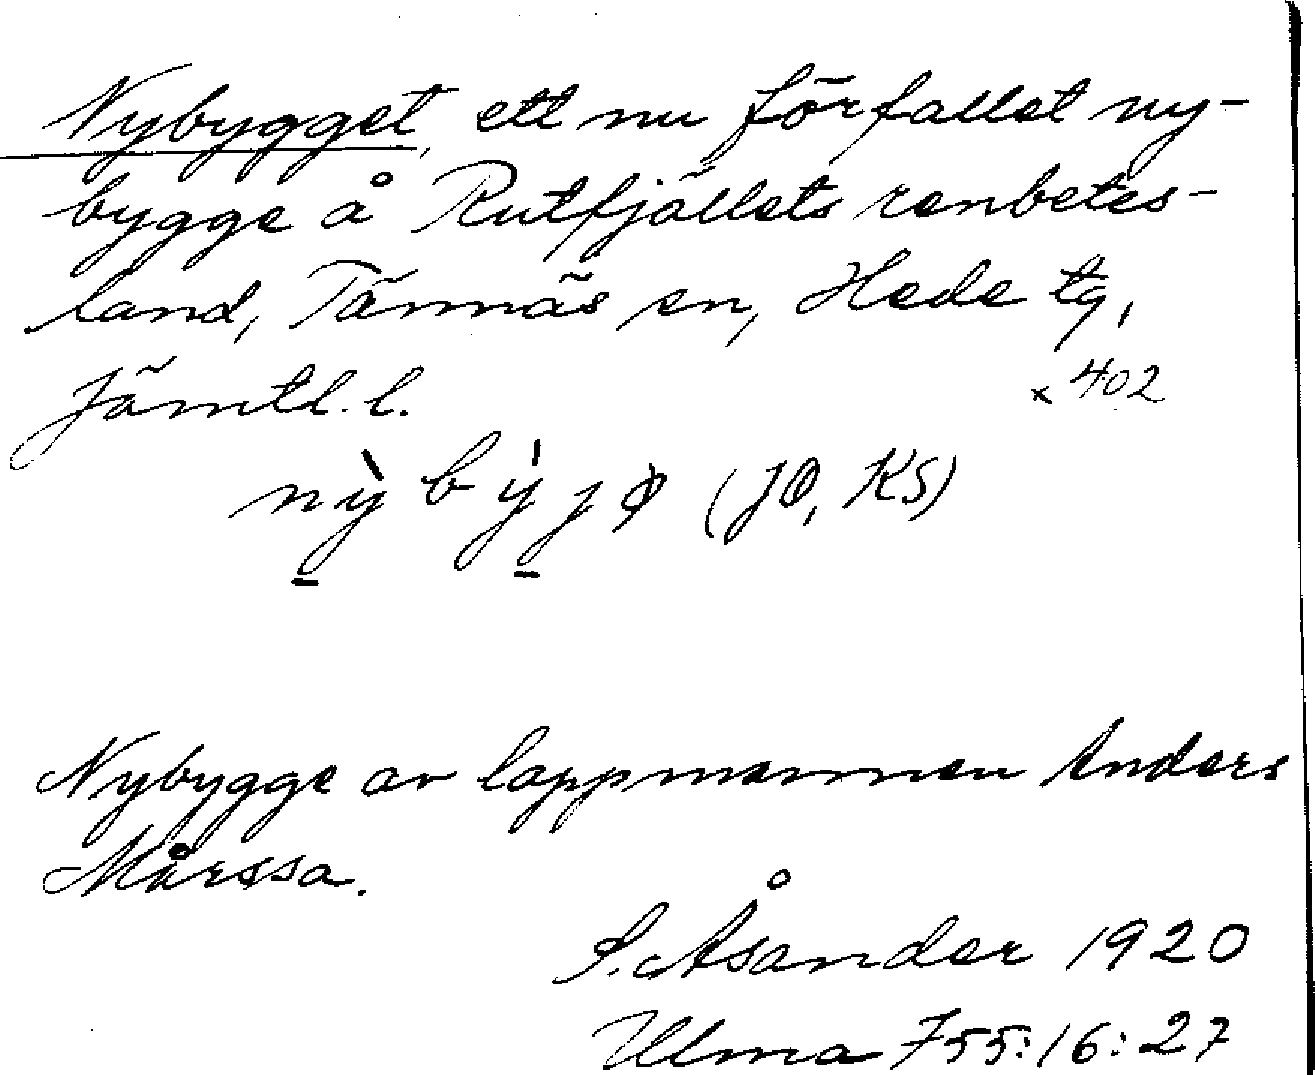 Nybygget, ett nu förfallet ny-
bygge å Rutfjällets renbetes-
land, Tännäs sn, Hede tg,
Jämtl. l. × 402
nỳbýjø (JO, KS)
Nybygge av lappmannen Anders
Mårssa.
S. Åsander 1920
Ulma 755:16:27